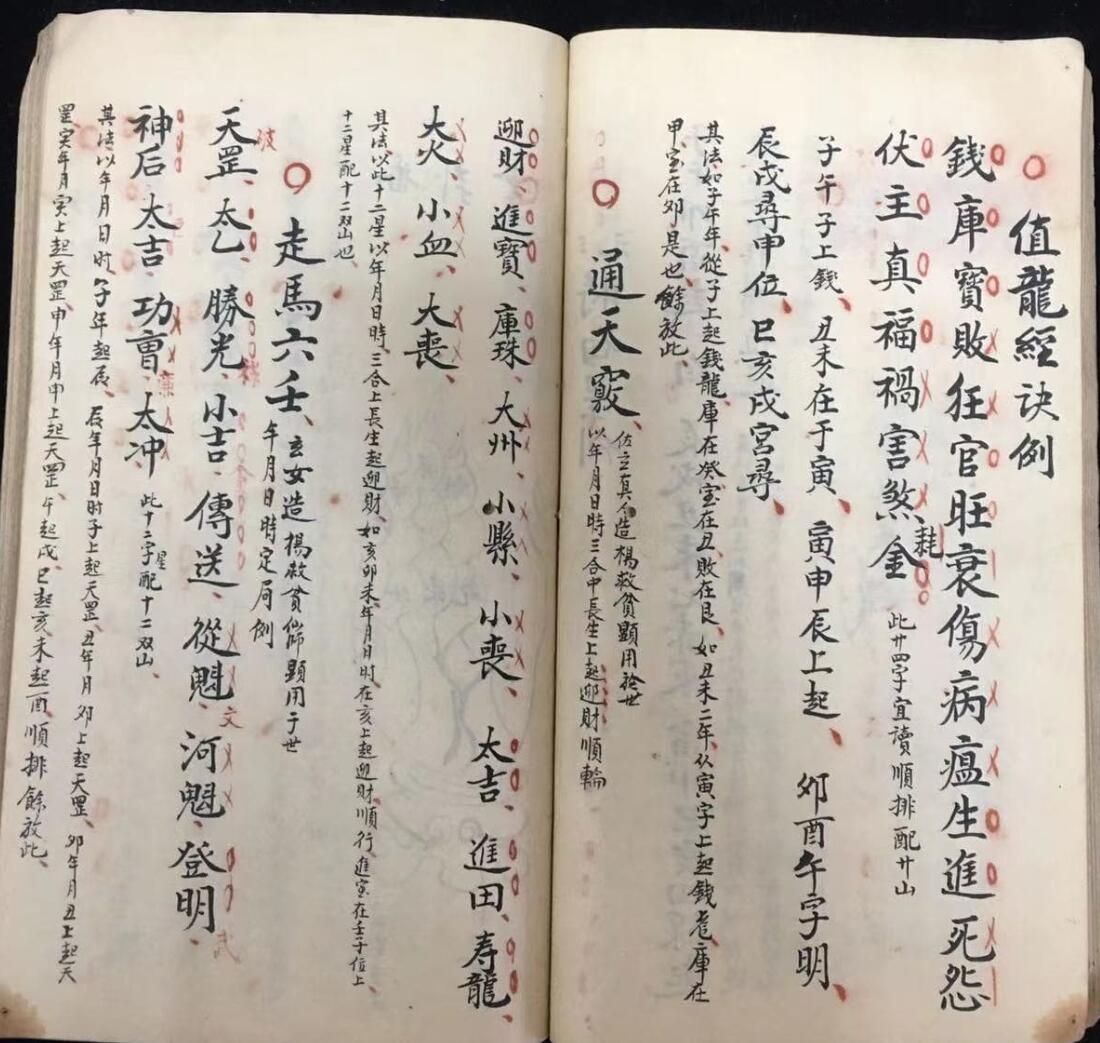 值龍經訣例
錢庫寶敗狂官旺衰傷病瘟生進死怨
伏主真福禍害煞耗金 此廿四字宜讀順排配廿山
子午子上錢、丑未在于寅、寅申辰上起、卯酉午字明、
辰戌尋申位、巳亥戌宮尋、
其法如子午年從子上起錢龍、庫在癸、宝在丑、敗在艮、如丑未二年、从寅字上起錢龙、庫在
甲、宝在卯是也、餘放此、
通天竅 佐立真人造楊救貧顕用於世
以年月日時三合中長生上起迎財順輪
迎財、進寶、庫珠、大州、小縣、小喪、太吉、進田、寿龍、
大火、小血、大喪、
其法以此十二星以年月日時、三合上長生起迎財、如亥卯未、年月日时、在亥上起迎財、順行、進宝在壬子位上、
十二星配十二双山也、
走馬六壬、玄女造楊救貧師顕用于世
年月日時定局例
天罡、太乙、勝光、小吉、傳送、從魁、河魁、登明、
神后、太吉、功曹、太冲、此十二字星配十二双山、
其法以年月日时、子年起辰、辰年月日时子上起天罡、丑年月卯上起天罡、卯年月丑上起天
罡、寅年月寅上起天罡、申年月申上起天罡、午起戌、巳起亥、未起酉、順排餘放此、
破
禄
廉
文
武